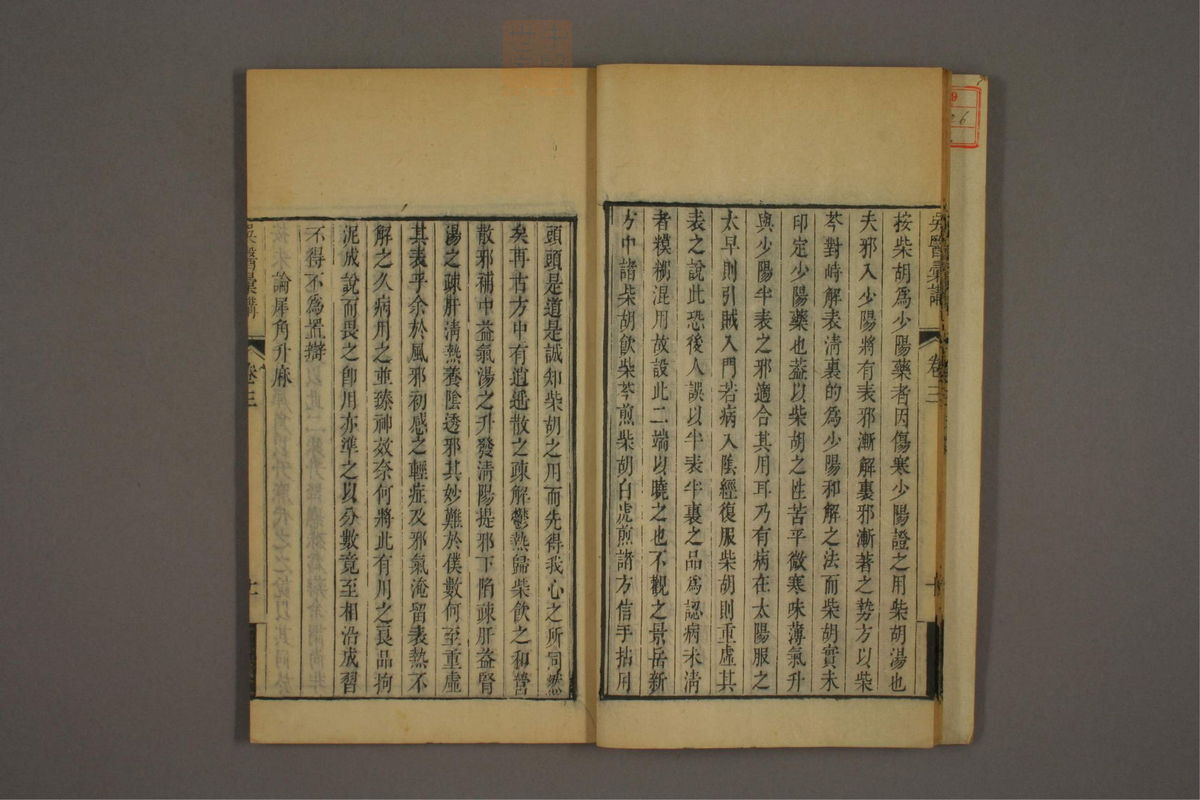 吳醫彙講
卷三
十
按柴胡爲少陽藥者因傷寒少陽證之用柴胡湯也
夫邪入少陽將有表邪漸解裏邪漸著之勢方以柴
芩對峙解表淸裏的爲少陽和解之法而柴胡實未
印定少陽藥也葢以柴胡之性苦平微寒味薄氣升
與少陽半表之邪適合其用耳乃有病在太陽服之
太早則引賊入門若病入陰經復服柴胡則重虛其
表之說此恐後人誤以半表半裏之品爲認病未淸
者糢糊混用故設此二端以曉之也不觀之景岳新
方中諸柴胡飮柴芩煎柴胡白虎煎諸方信手拈用
頭頭是道是誠知柴胡之用而先得我心之所同然
矣再古方中有逍遙散之疎解鬱熱歸柴飮之和營
散邪補中益氣湯之升發淸陽提邪下陷疎肝益腎
湯之疎肝淸熱養陰透邪其妙難於僕數何至重虛
其表乎余於風邪初感之輕症及邪氣淹留表熱不
解之久病用之並臻神效奈何將此有用之良品拘
泥成說而畏之卽用亦準之以分數竟至相沿成習
不得不爲置辯
按朱論犀角升麻
吳醫彙講
卷三
十一